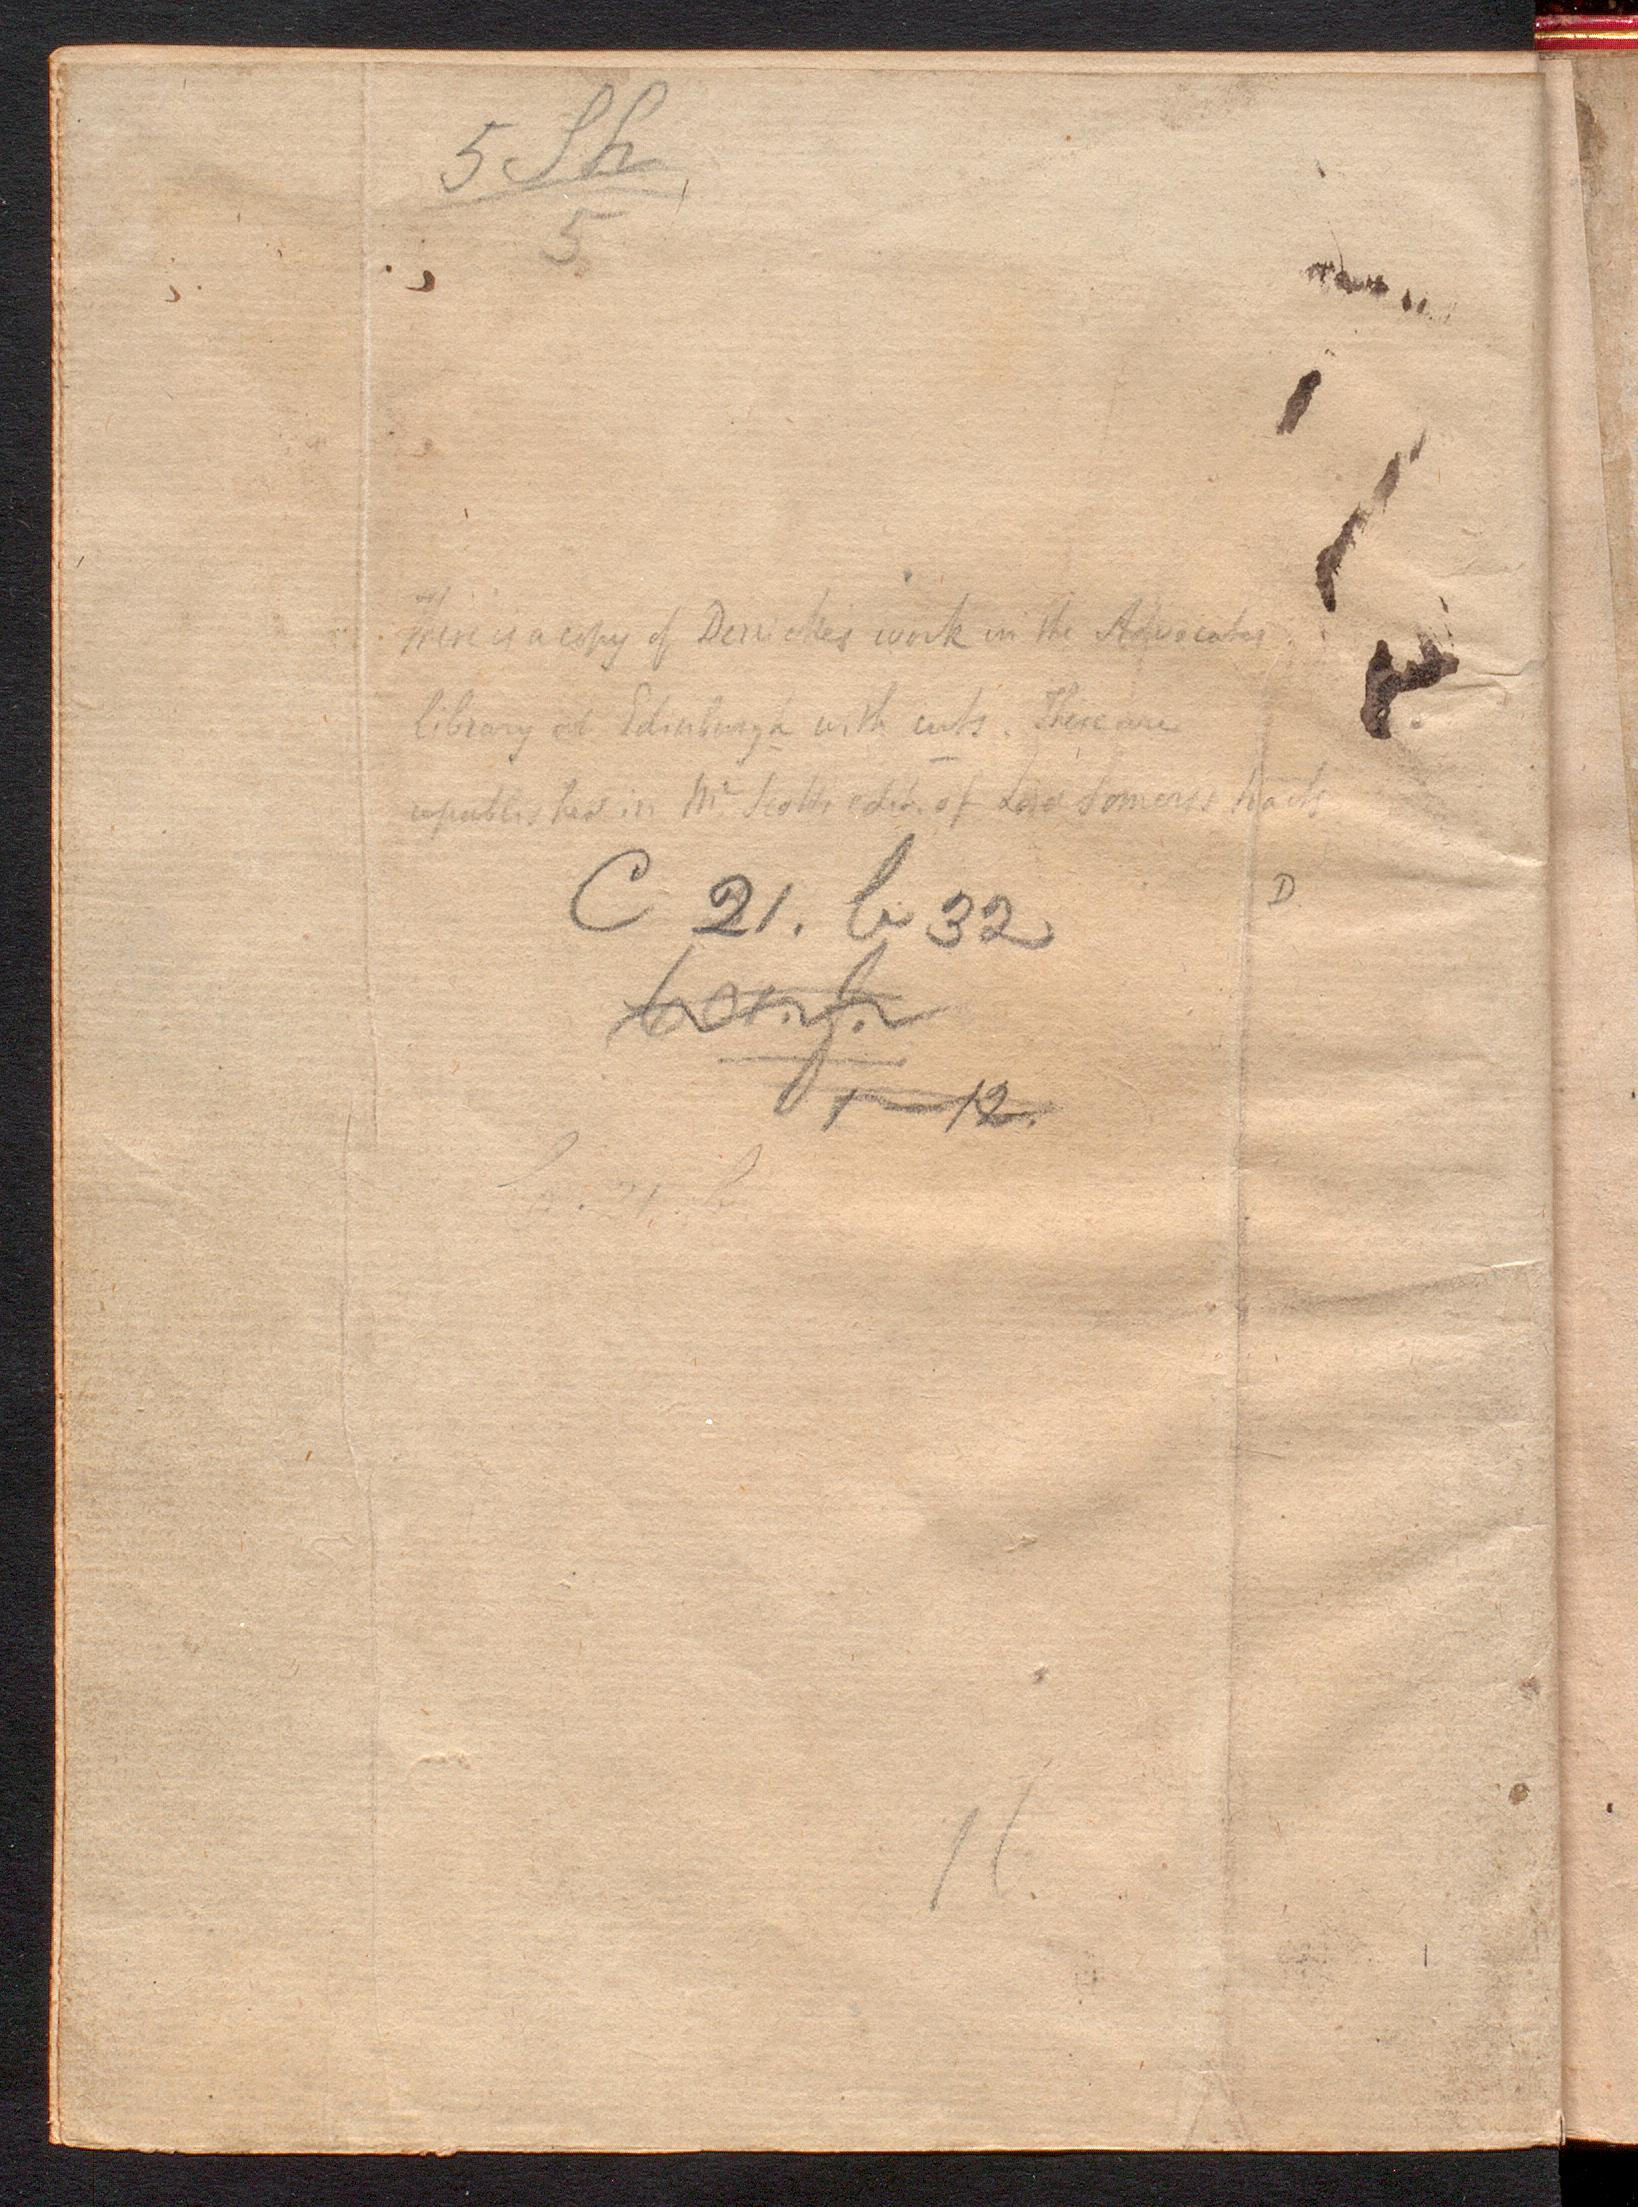 5 Sh
5
There is a copy of Derricke's work in the Advocates
library at Edinburgh with cuts. These are
republished in Mr Scotts edit. of Lord Somers's tracts
D
C 21. b 32
1 — 12.
21. b